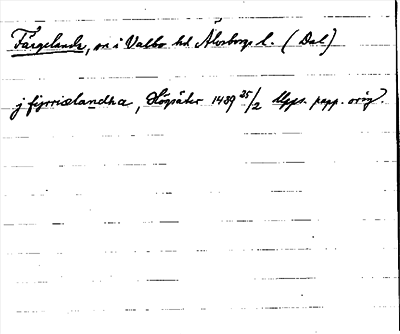 Färgelanda, sn i Valbo hd Älvsborgs l. (Dal)
j fijrrislandha, Högsäter 1439 25/2 Upps. papp. orig.